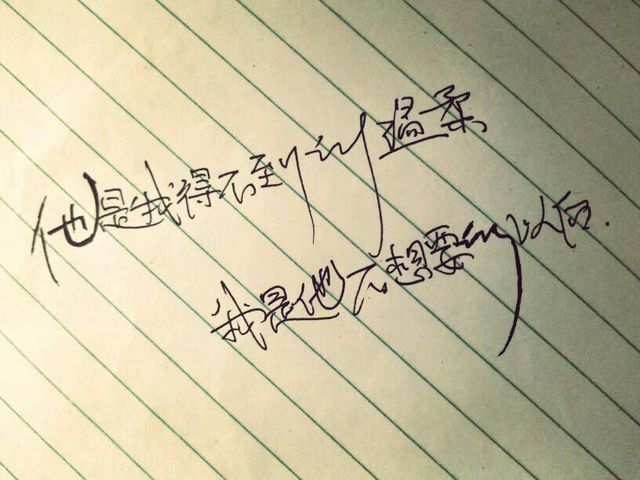 他是我得不到的温柔
我是他不想要的以后.